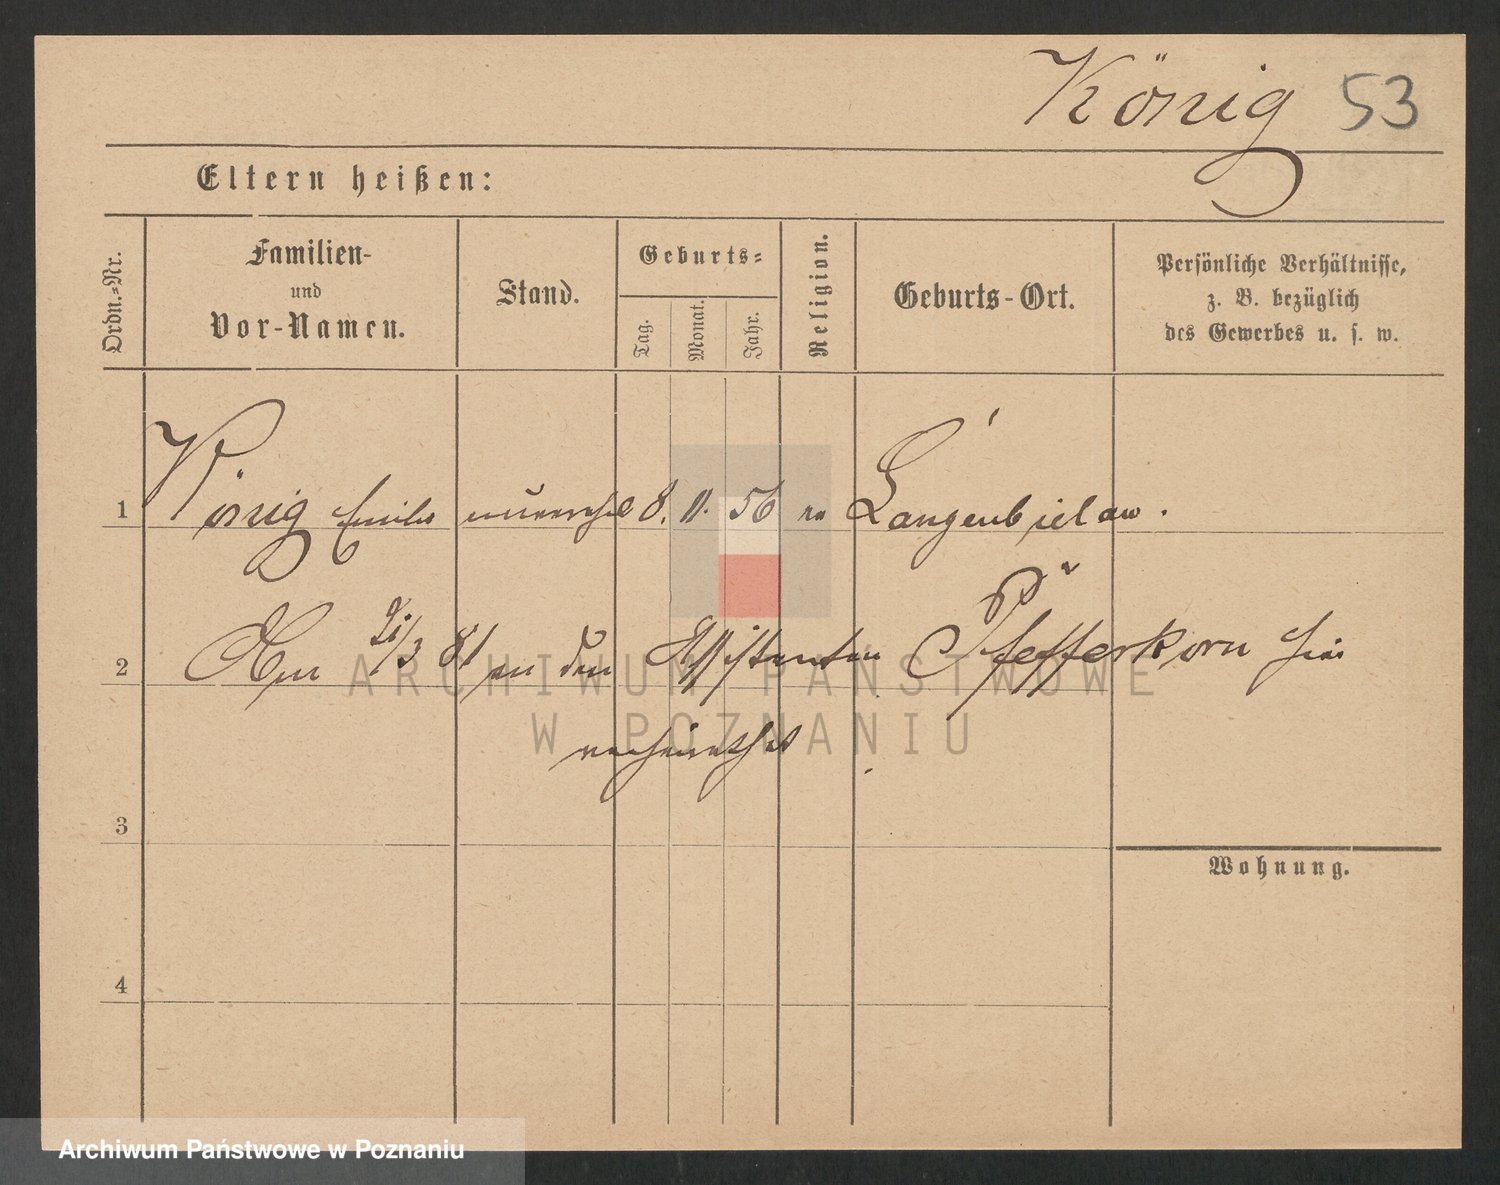 König 53
Eltern heißen:
Ordn.-Nr.
Familien-
und
Vor-Namen.
Stand.
Geburts-
Tag.
Monat.
Jahr.
Religion.
Geburts-Ort.
Persönliche Verhältnisse,
z. B. bezüglich
des Gewerbes u. s. w.
1 König Emilie unverehel 8. 11. 56 ev Langenbielau.
2 Am /3 81 an den Assistenten Pfefferkorn hier
verheirathet
3
Wohnung.
4
ARCHIWUM PAŃSTWOWE
W POZNANIU
Archiwum Państwowe w Poznaniu